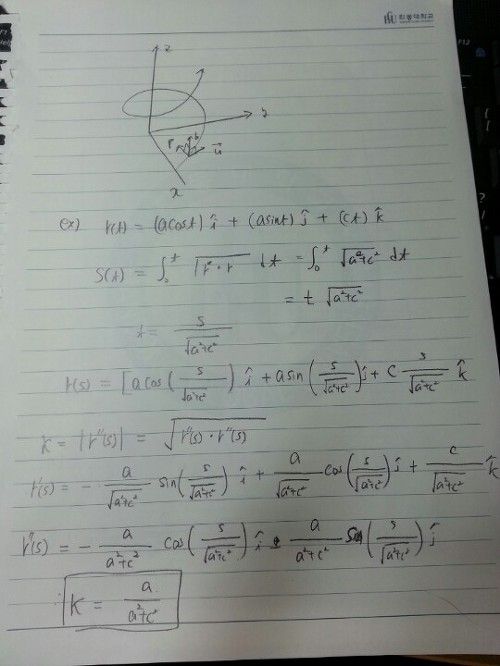 한동대학교
F12
z
y
r
b
u
x
ex) r(t) = (a cos t) î + (a sin t) ĵ + (ct) k̂
S(t) = ∫₀ᵗ √(r'·r') dt = ∫₀ᵗ √(a²+c²) dt
= t √(a²+c²)
t = s/√(a²+c²)
r(s) = [a cos(s/√(a²+c²)) î + a sin(s/√(a²+c²)) ĵ + c s/√(a²+c²) k̂
K = |r''(s)| = √(r''(s)·r''(s))
r'(s) = - a/√(a²+c²) sin(s/√(a²+c²)) î + a/√(a²+c²) cos(s/√(a²+c²)) ĵ + c/√(a²+c²) k̂
r''(s) = - a/(a²+c²) cos(s/√(a²+c²)) î - a/(a²+c²) sin(s/√(a²+c²)) ĵ
∴ K = a/(a²+c²)